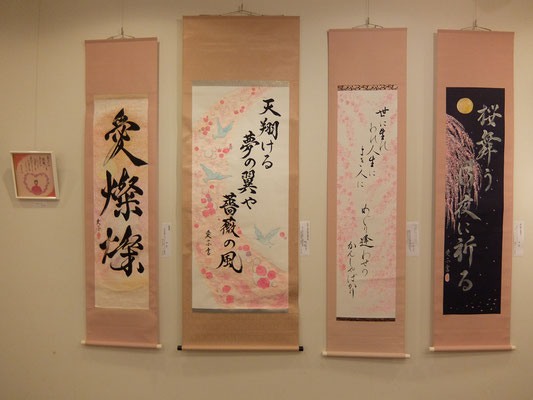 愛燦燦
天翔ける
夢の翼や
薔薇の風
世に生れ
われ人生に
よき人に
めぐり逢わせの
かんしゃばかり
桜舞う
月夜に祈る